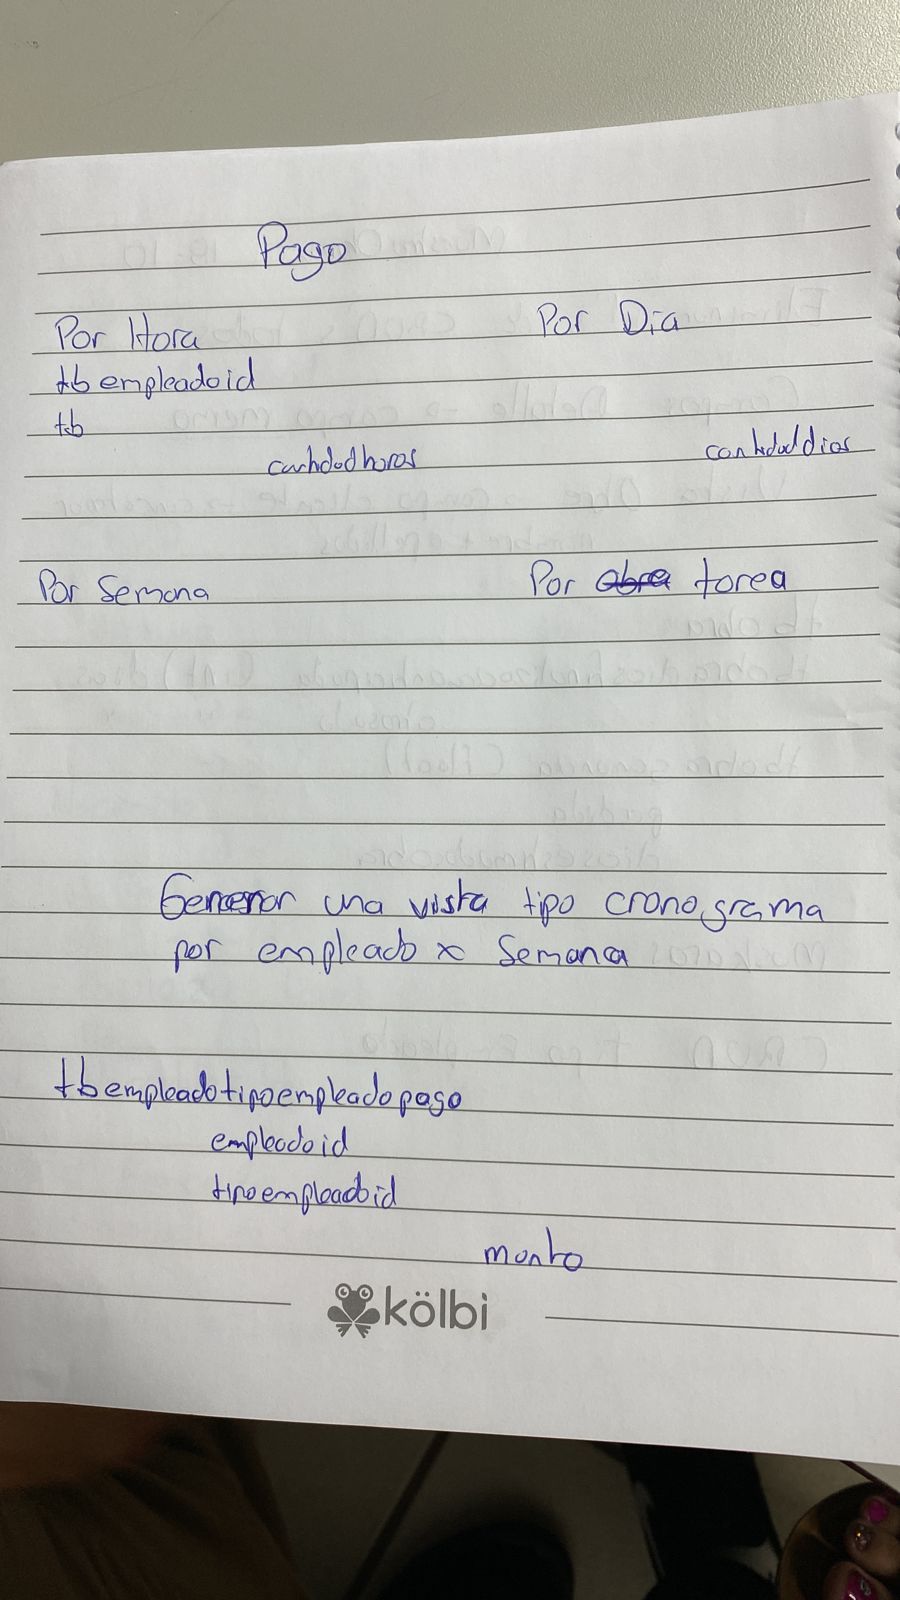 Pago
Por Hora
Por Día
tbempleadoid
tb
cantidadhoras
cantidaddias
Por Semana
Por obra tarea
Generar una vista tipo cronograma
por empleado x Semana
tbempleadotipoempleadopago
empleadoid
tipoempleadoid
monto
kölbi